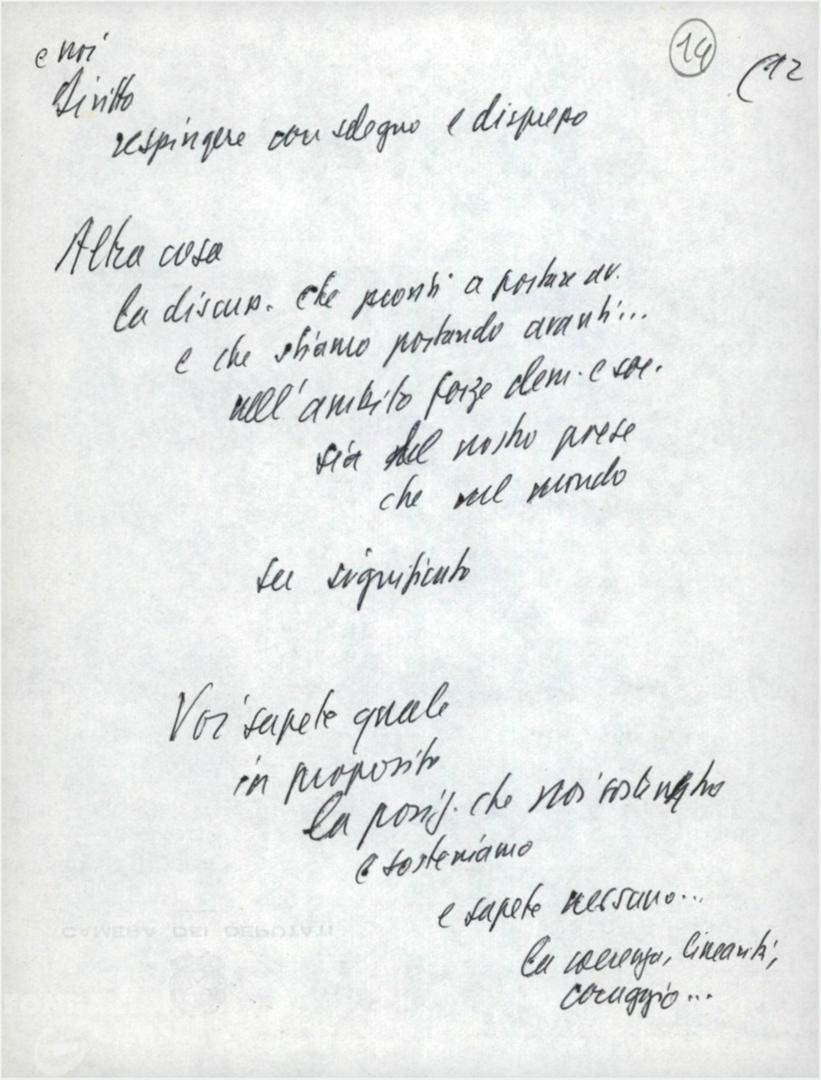 14
(12
e noi
diritto
respingere con sdegno e disprezzo
Altra cosa
la discuss. che pronti a portare av.
e che stiamo portando avanti...
nell'ambito forze dem. e soc.
sia del nostro paese
che nel mondo
su significato
Voi sapete quale
in proposito
la posiz. che noi
e sosteniamo
e sapete nessuno...
la coerenza, linearità,
coraggio...
CAMERA DEI DEPUTATI